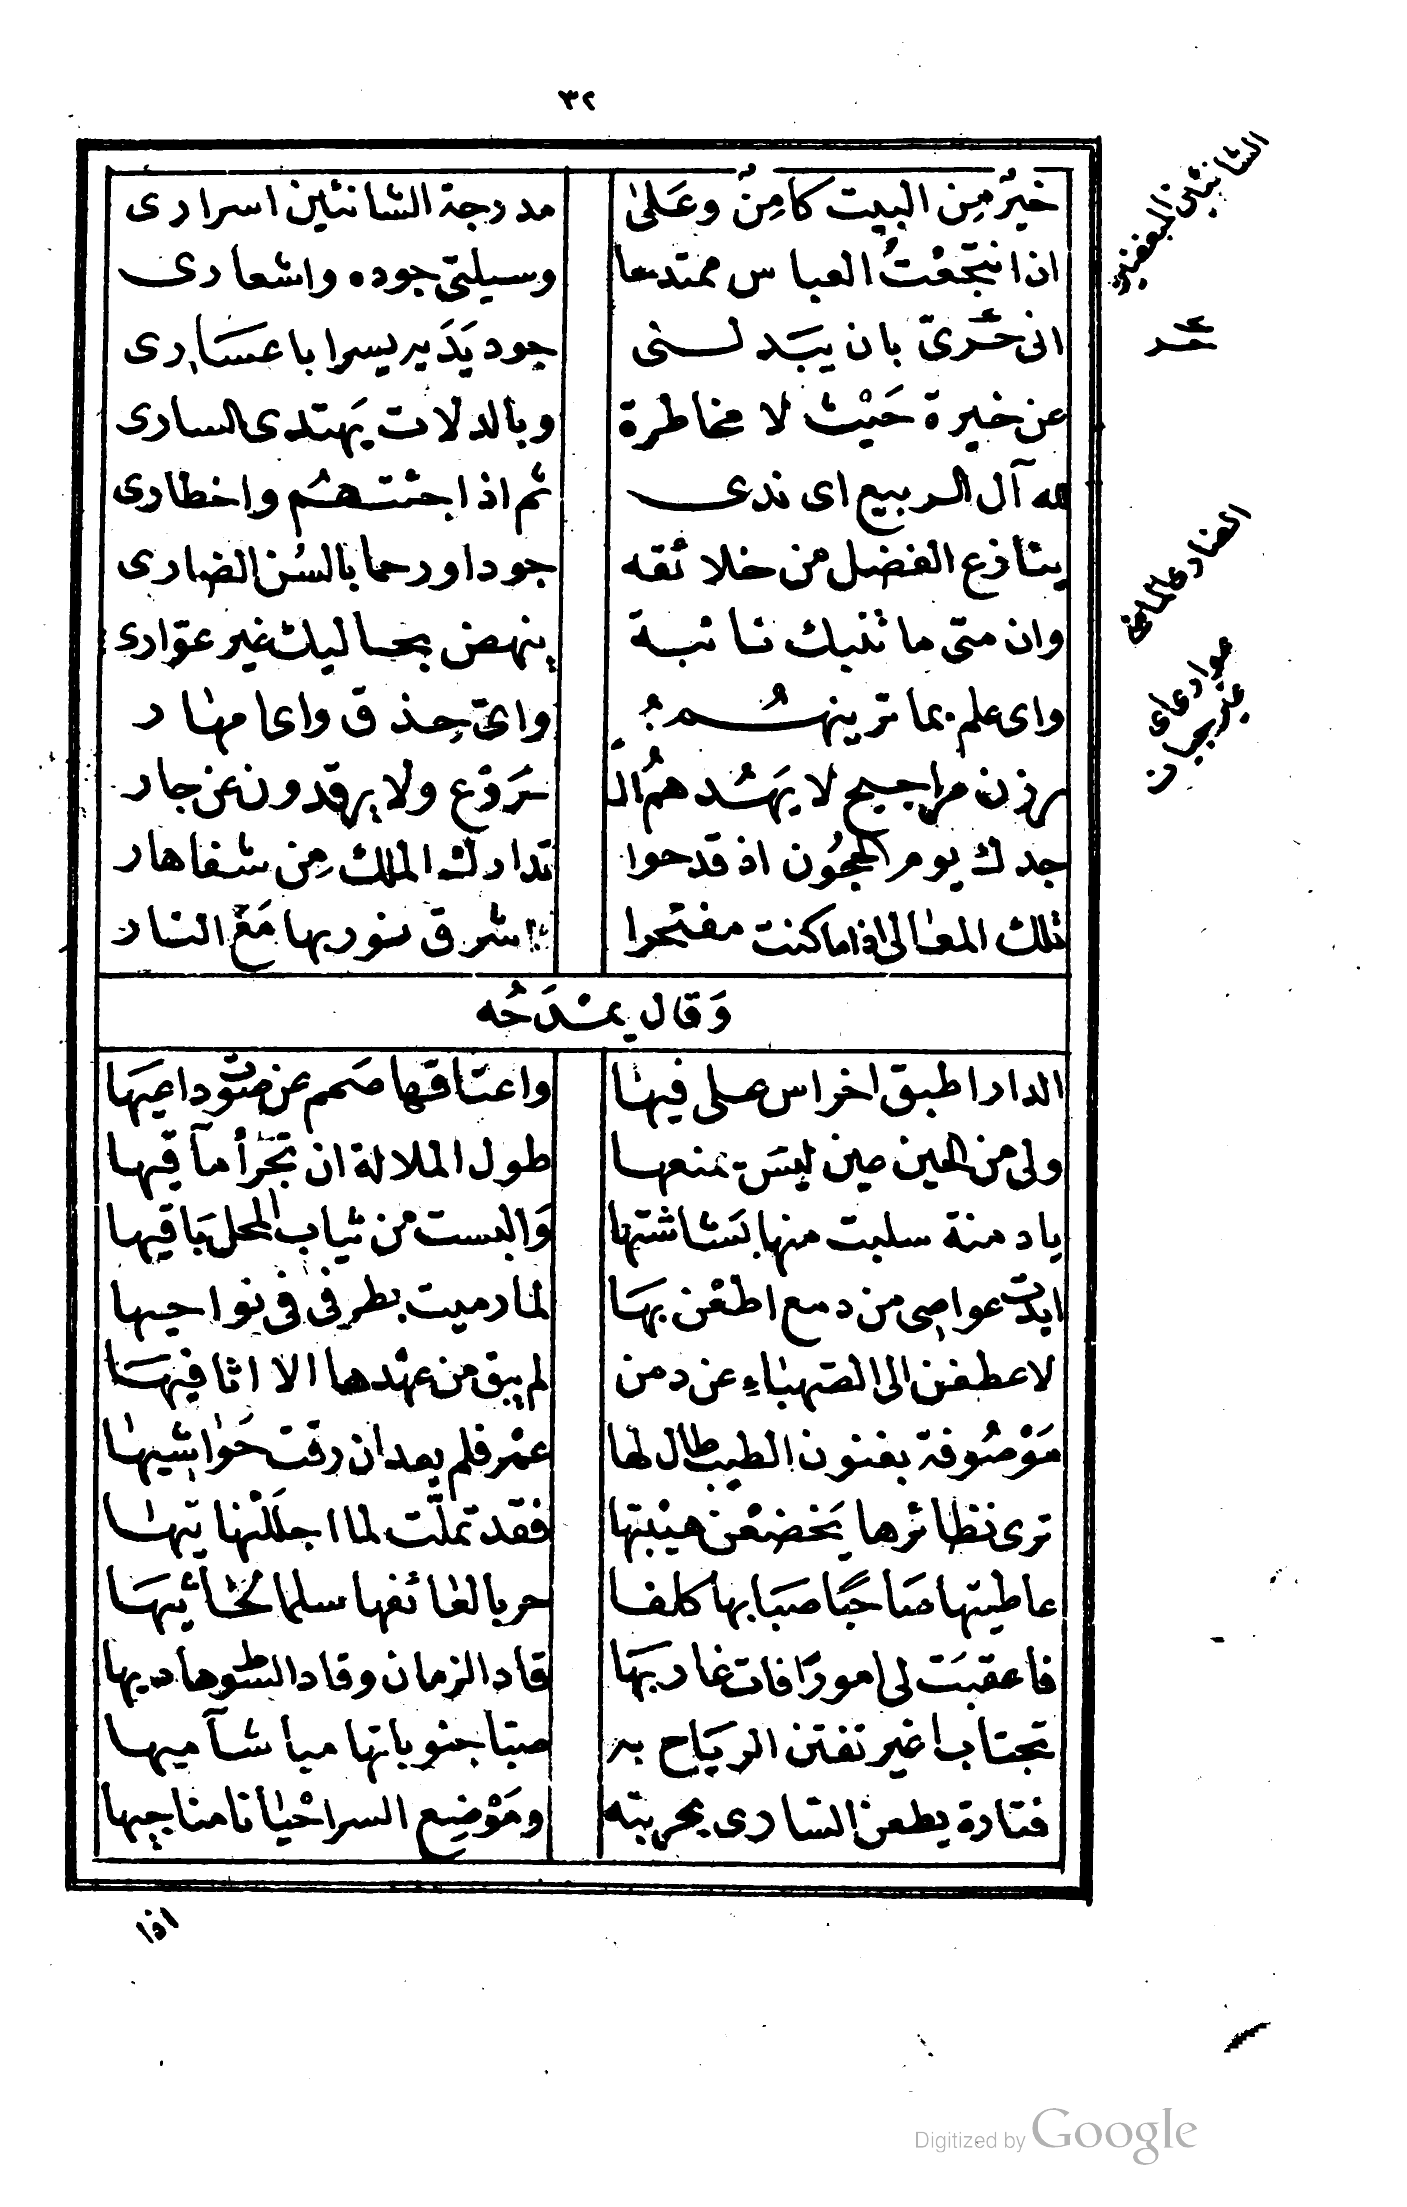 ٣٢
خيرٌ مِن البيت كامِنٌ وعَلىٰ مدرجة الشانئين اسرارى
اذا انتجعْتُ العباس ممتدحا وسيلتى جوده واشعارى
انى حَرىّ بان يبَدلسنى جود يدَيه يسرا باعسَارى
عن خيرة حَيْث لا مخاطرة وبالدلالات يَهتدى السارى
لله آل الربيع اى ندى ثم اذا جئتهُم واخطارى
ينازع الفضل من خلائقه جودا ورحما بالسُن الضارى
وان متى ما تنبك نائبة ينهض بحاليك غير عوّارى
واى علم بما تزينهُم واىّ حِذق واى امهار
رزن مراجيح لا يَهُدهمُ الـ ـرَوْع ولا يرقدون عن جار
جدك يوم الحجُون اذ قدحوا تدارك الملك مِن شفاهار
تلك المعالى اذا ما كنت مفتخرا اشرق نوربها مَعَ النار
وَقال يمْدَحُه
الدار اطبق اخراس على فيها واعتاقها صَمم عن صَوت داعيَها
ولى من الحين صين ليسَ يمنعها طول الملالة ان تجْرأ مآقيها
يا دمنة سلبت منها بَشاشتها وَالبست من ثياب المحل بَاقيها
ابدت عواصى من دمع اطعْن بهَا لما رميت بطرفى فى نواحيها
لاعطفن الى الصّهبَاءِ عن دمن لم يبق من عهْدها الا اثافيهَا
مَوْصُوفة بفنون الطيب طال لها عمْر فلم يعد ان رقت حَوٰاشيها
ترى نظائرها يَخضعْن هيْبتها فقد تملّت لما اجلَلْنها تيها
عاطيتها صَاحبًا صَبا بها كلفا حربا لعَائفها سلما لحَاسيهَا
فاعقبَت لى امورًا فات غاربهَا قاد الزمان وقاد الشطو هاديها
تجتاب اغبر تفتن الريَاح به صبا جنوباتها ميا شآميها
فتارة يطعن السّارى بحربته ومَوْضِع السراحْيَانا مناجيها
الشانئين المبغضين
الضارى الماضى
عوارى اى
غير جبان
اذا
Digitized by Google